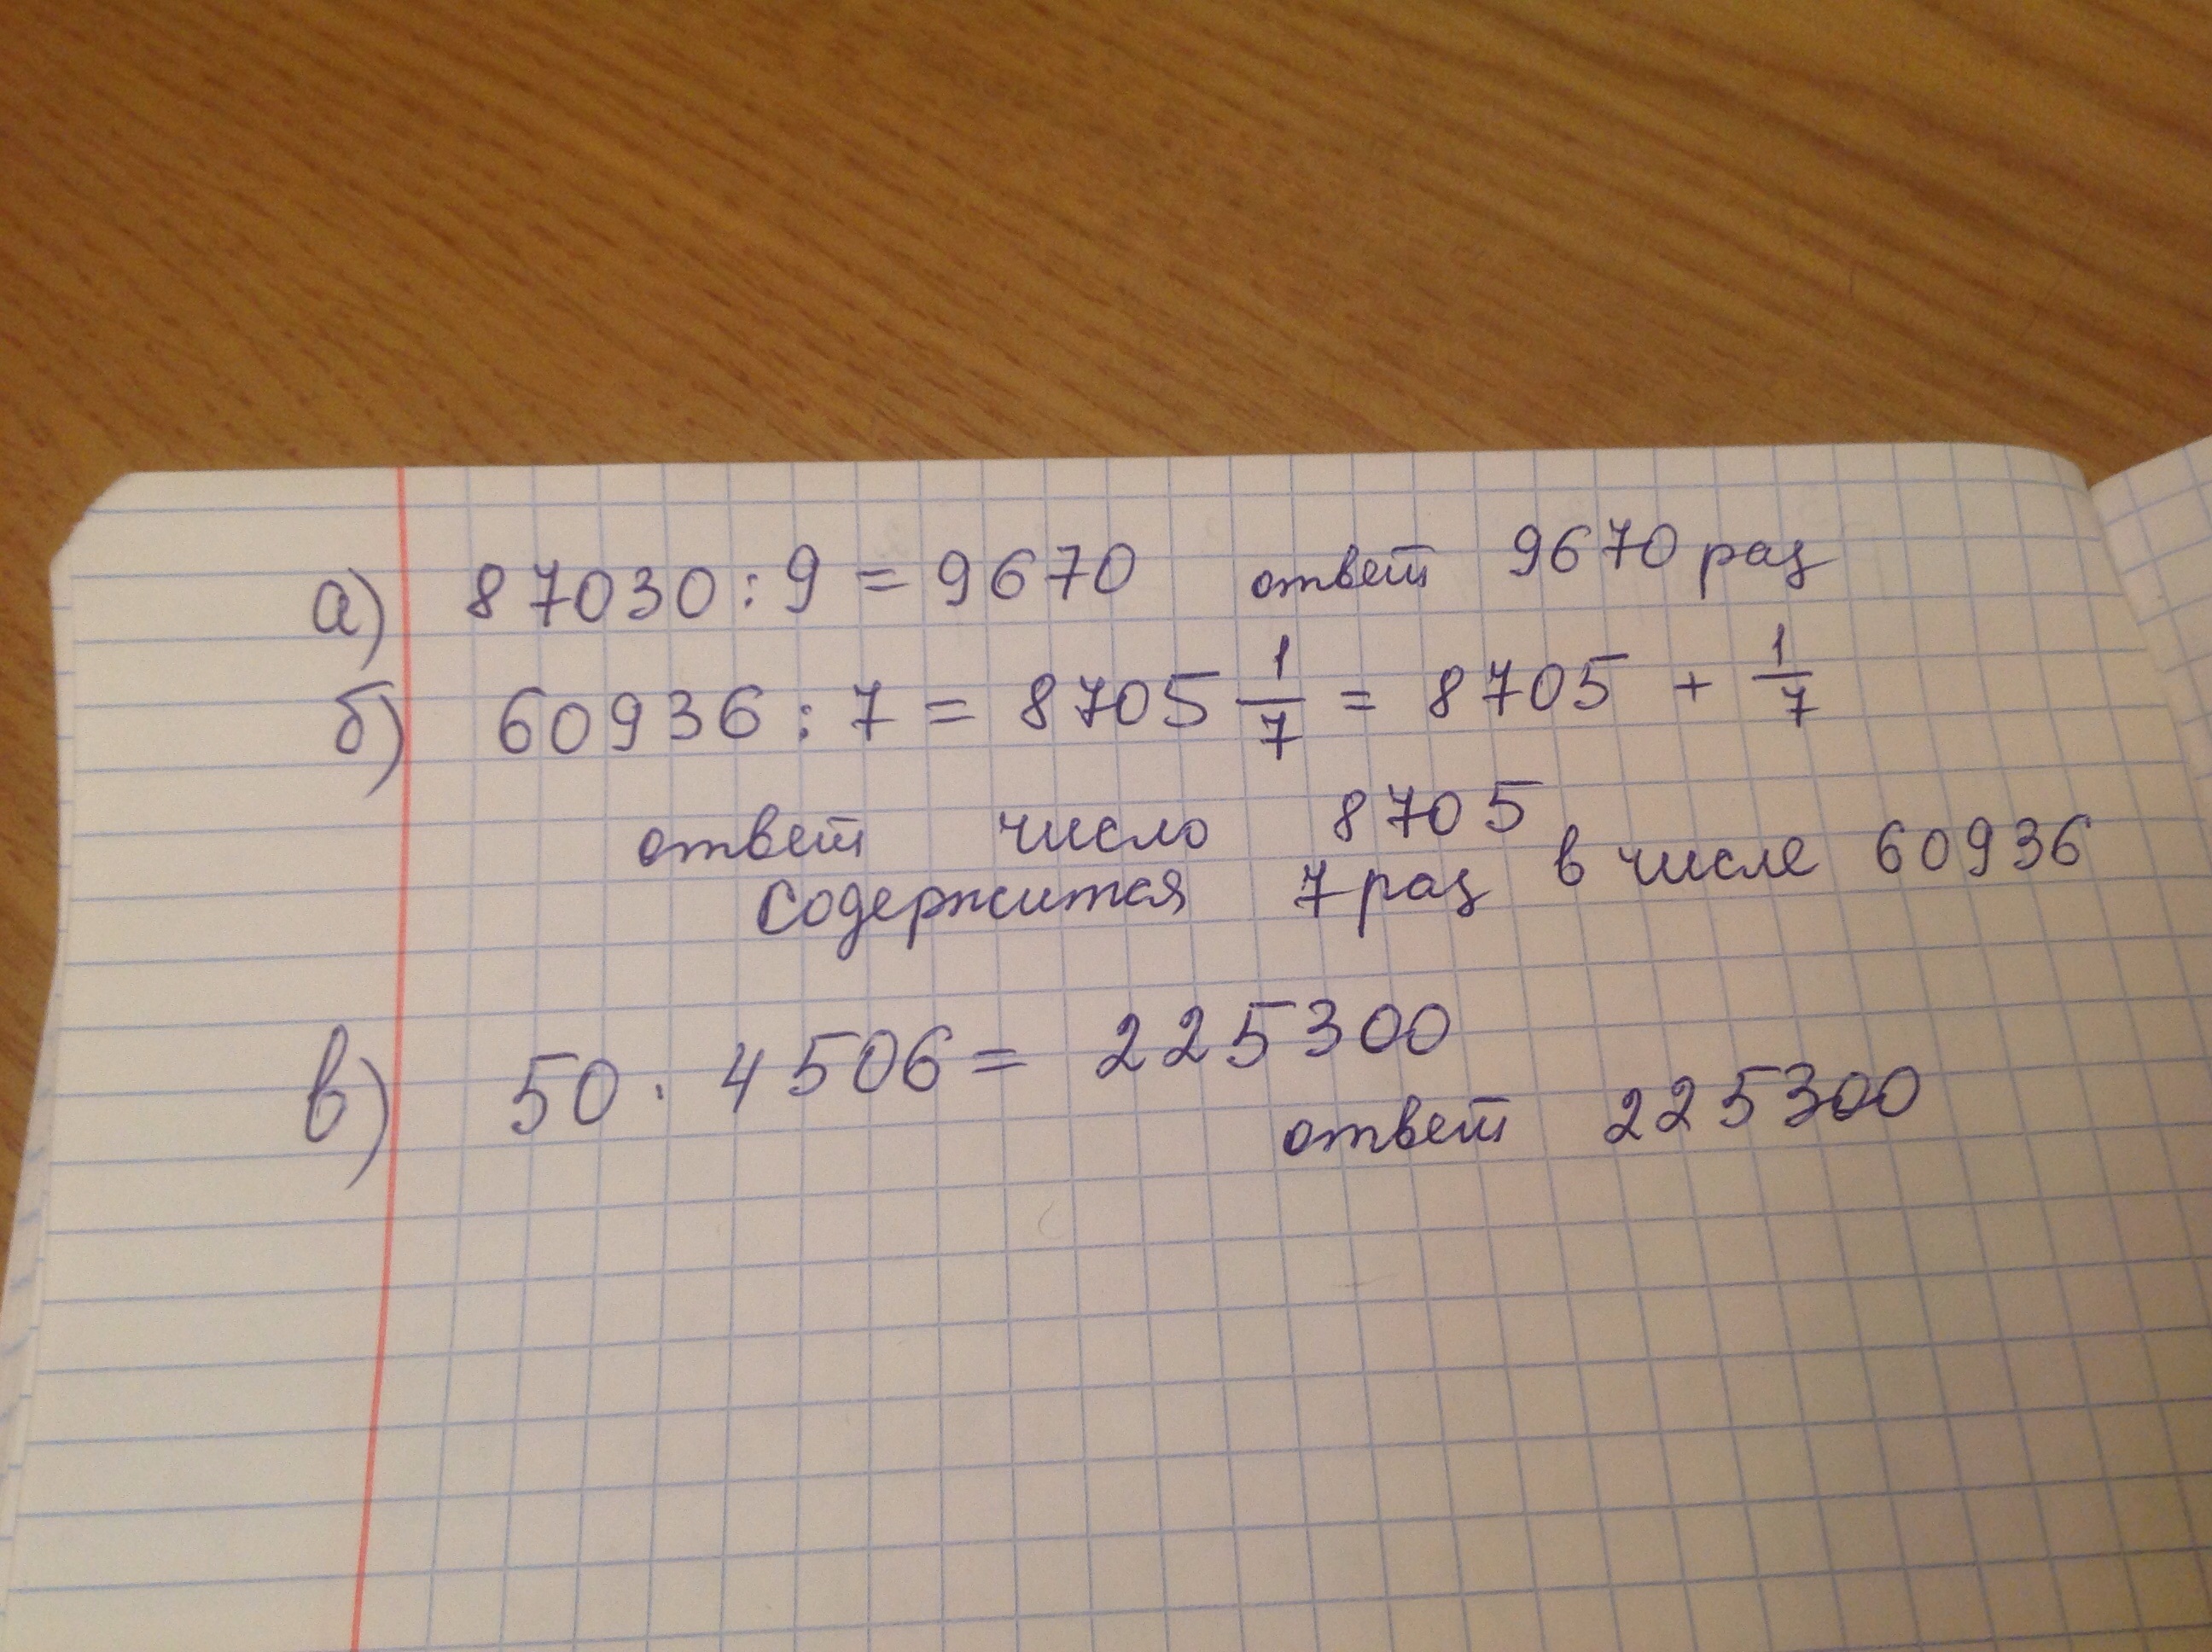 а) 87030 : 9 = 9670 ответ 9670 раз
б) 60936 : 7 = 8705 1/7 = 8705 + 1/7
ответ число 8705
содержится 7 раз в числе 60936
в) 50 · 4506 = 225300
ответ 225300